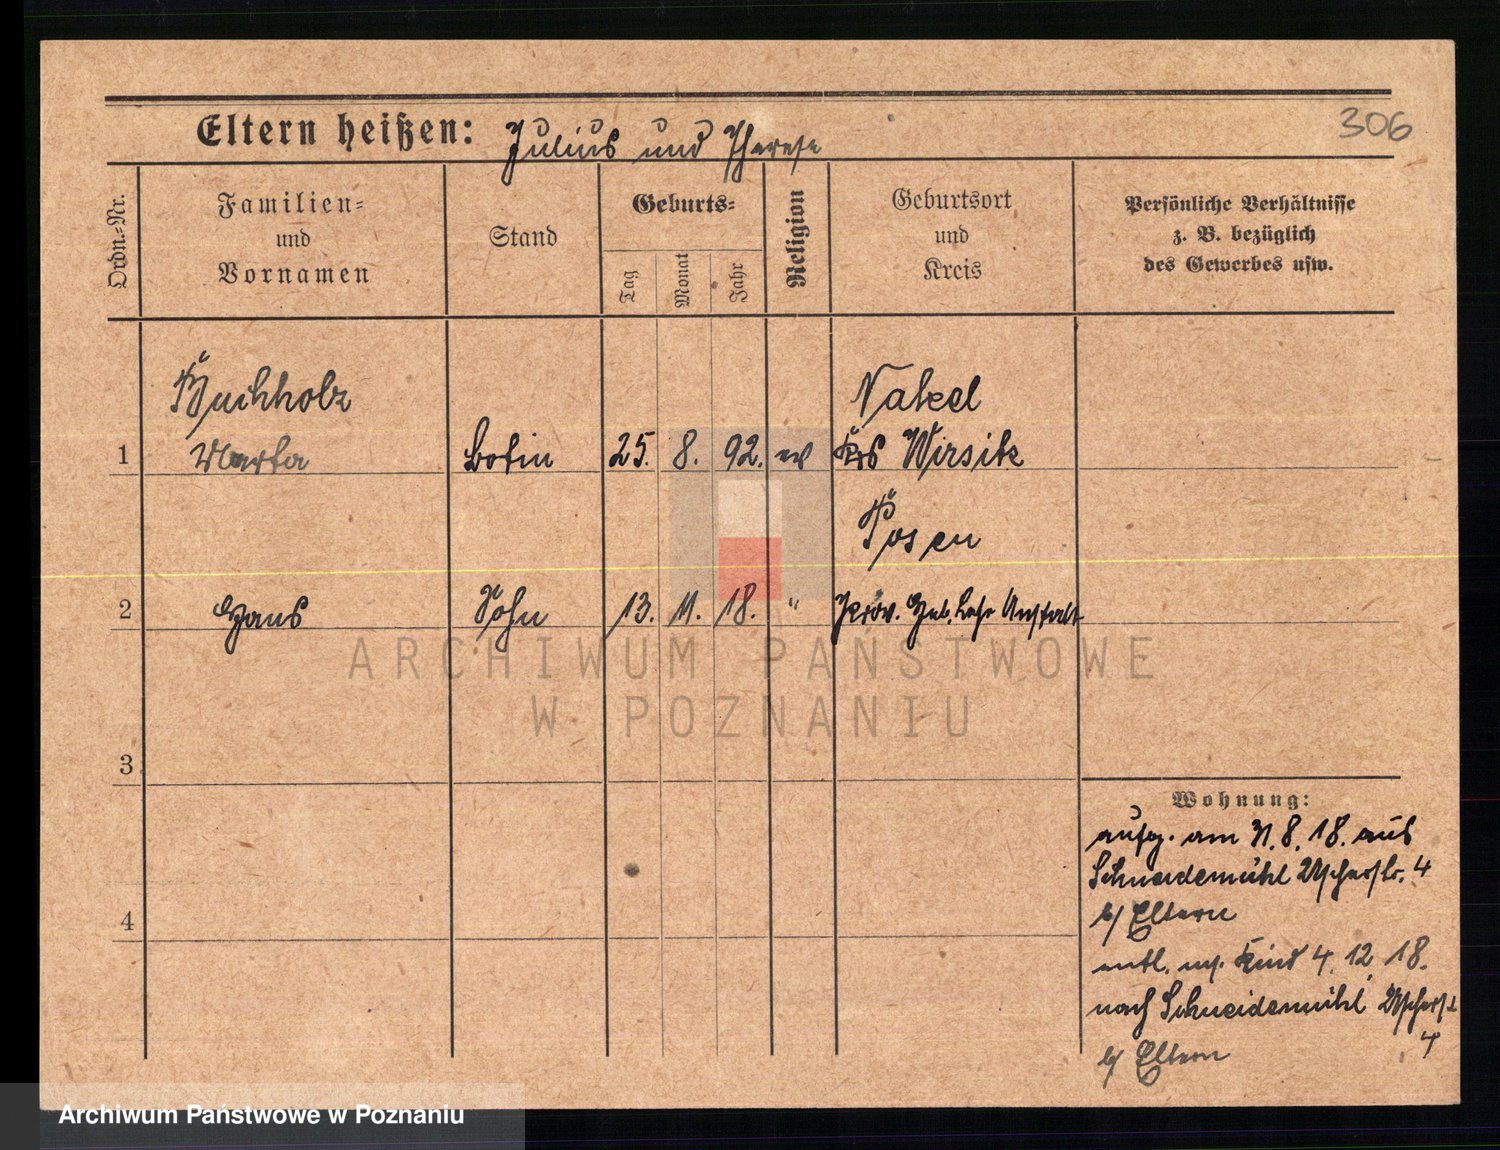 306
Eltern heißen: Julius und Therese
Ordn.-Nr.
Familien-
und
Vornamen
Stand
Geburts-
Tag
Monat
Jahr
Religion
Geburtsort
und
Kreis
Persönliche Verhältnisse
z. B. bezüglich
des Gewerbes usw.
Buchholz
Nakel
1 Marta Botin 25. 8. 92. ev Krs Wirsitz
Posen
2 Hans Sohn 13. 11. 18. " Prov. Heb. Lehr Anstalt
3
4
Wohnung:
aufg. am 31. 8. 18. aus
Schneidemühl Uscherstr. 4
b/ Eltern
entl. m/. Kind 4. 12. 18.
nach Schneidemühl Uscherst
4
b/ Eltern
ARCHIWUM PAŃSTWOWE
W POZNANIU
Archiwum Państwowe w Poznaniu